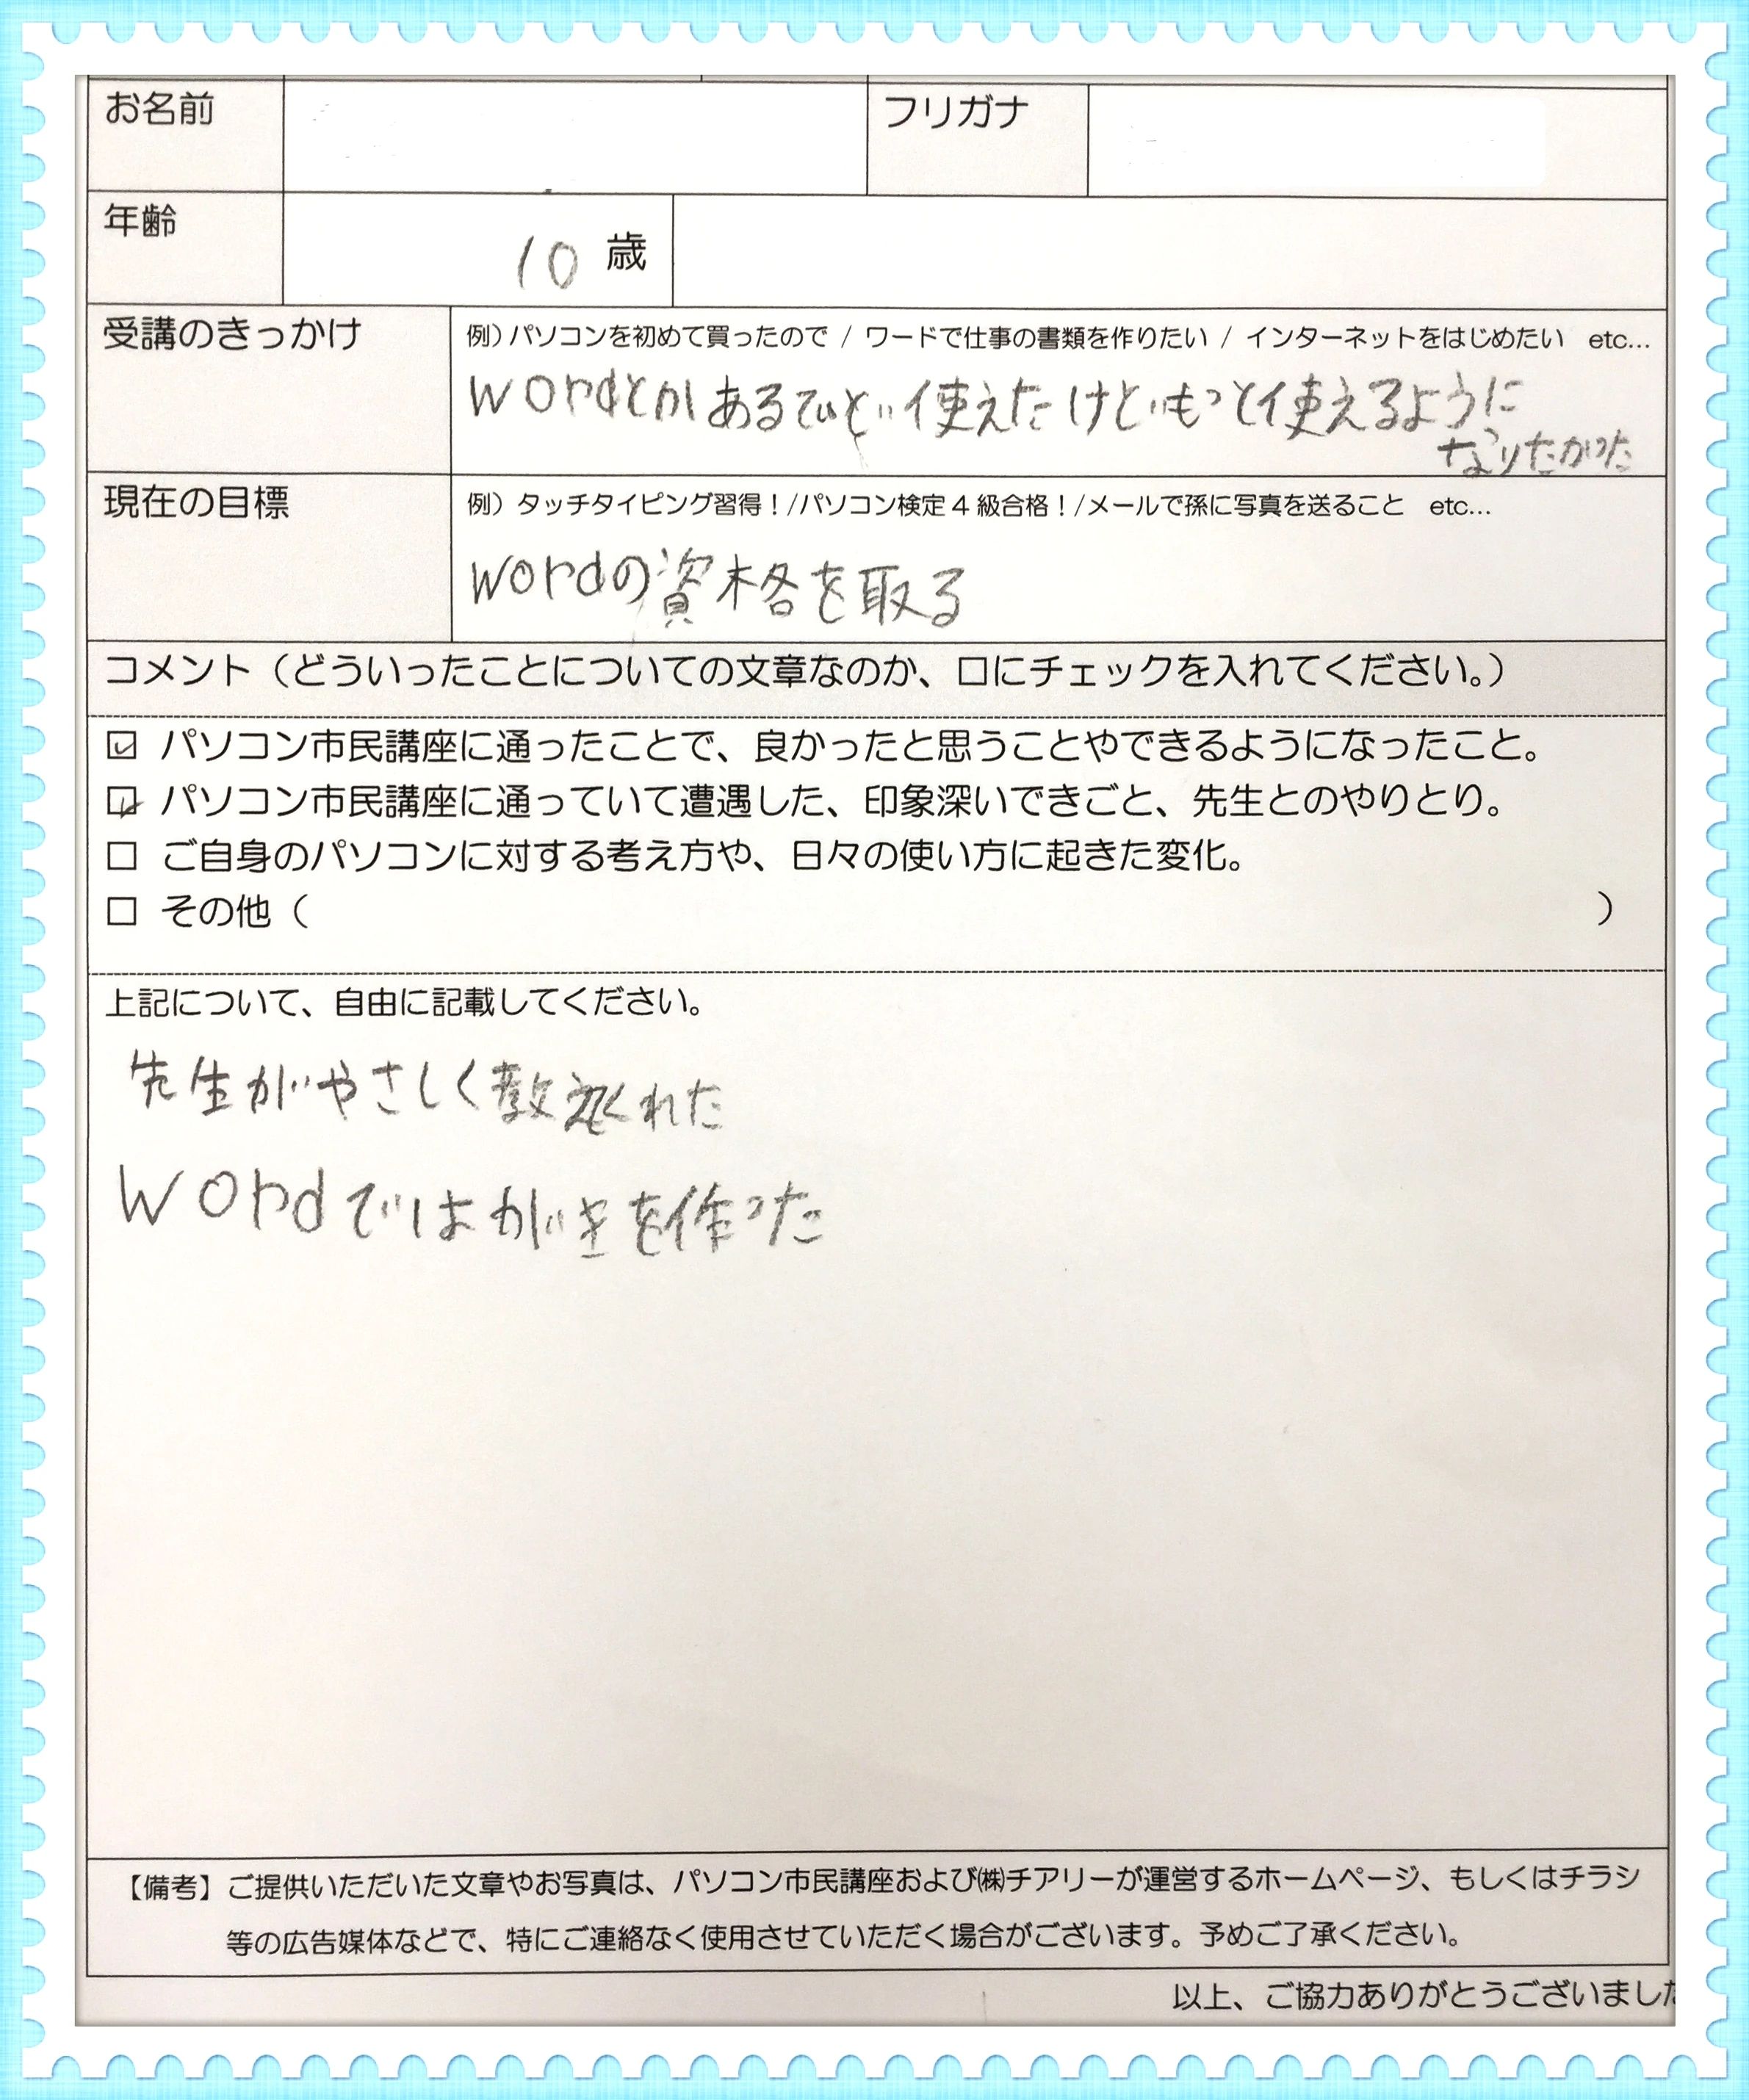 お名前 フリガナ
年齢 10 歳
受講のきっかけ 例）パソコンを初めて買ったので / ワードで仕事の書類を作りたい / インターネットをはじめたい etc...
wordとかあるていど使えたけどもっと使えるように
なりたかった
現在の目標 例）タッチタイピング習得！/パソコン検定4級合格！/メールで孫に写真を送ること etc...
wordの資格を取る
コメント（どういったことについての文章なのか、口にチェックを入れてください。）
☑ パソコン市民講座に通ったことで、良かったと思うことやできるようになったこと。
☑ パソコン市民講座に通っていて遭遇した、印象深いできごと、先生とのやりとり。
□ ご自身のパソコンに対する考え方や、日々の使い方に起きた変化。
□ その他（ ）
上記について、自由に記載してください。
先生がやさしく教えてくれた
wordではがきを作った
【備考】ご提供いただいた文章やお写真は、パソコン市民講座および㈱チアリーが運営するホームページ、もしくはチラシ
等の広告媒体などで、特にご連絡なく使用させていただく場合がございます。予めご了承ください。
以上、ご協力ありがとうございました